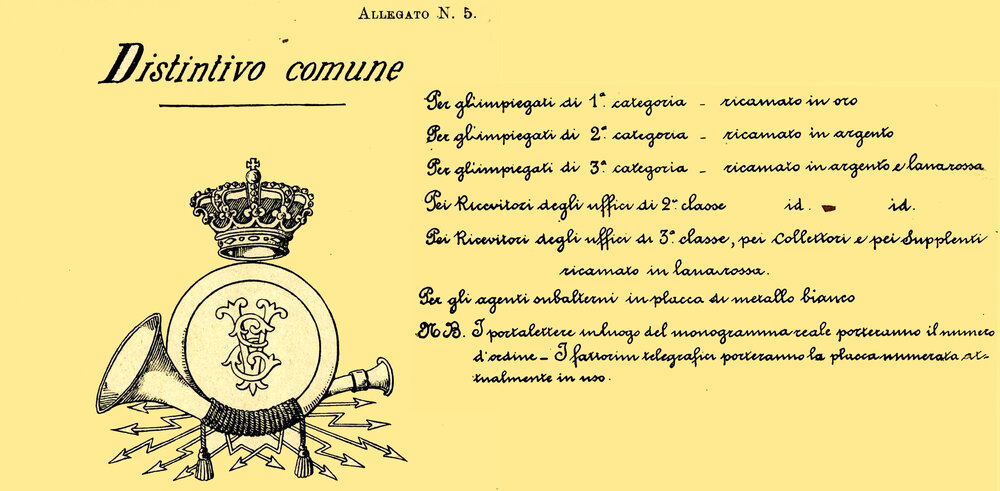 ALLEGATO N. 5.
Distintivo comune
Per gl'impiegati di 1ª. categoria - ricamato in oro
Per gl'impiegati di 2ª. categoria - ricamato in argento
Per gl'impiegati di 3ª. categoria - ricamato in argento e lana rossa
Pei Ricevitori degli uffici di 2ª. classe id. - id.
Pei Ricevitori degli uffici di 3ª. classe, pei Collettori e pei Supplenti
ricamato in lana rossa.
Per gli agenti subalterni in placca di metallo bianco
NB. I portalettere in luogo del monogramma reale porteranno il numero
d'ordine - I fattorini telegrafici porteranno la placca numerata at-
tualmente in uso.